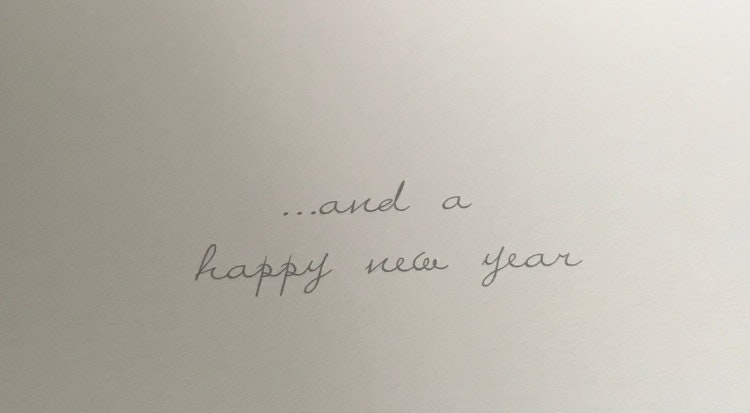 ...and a
happy new year